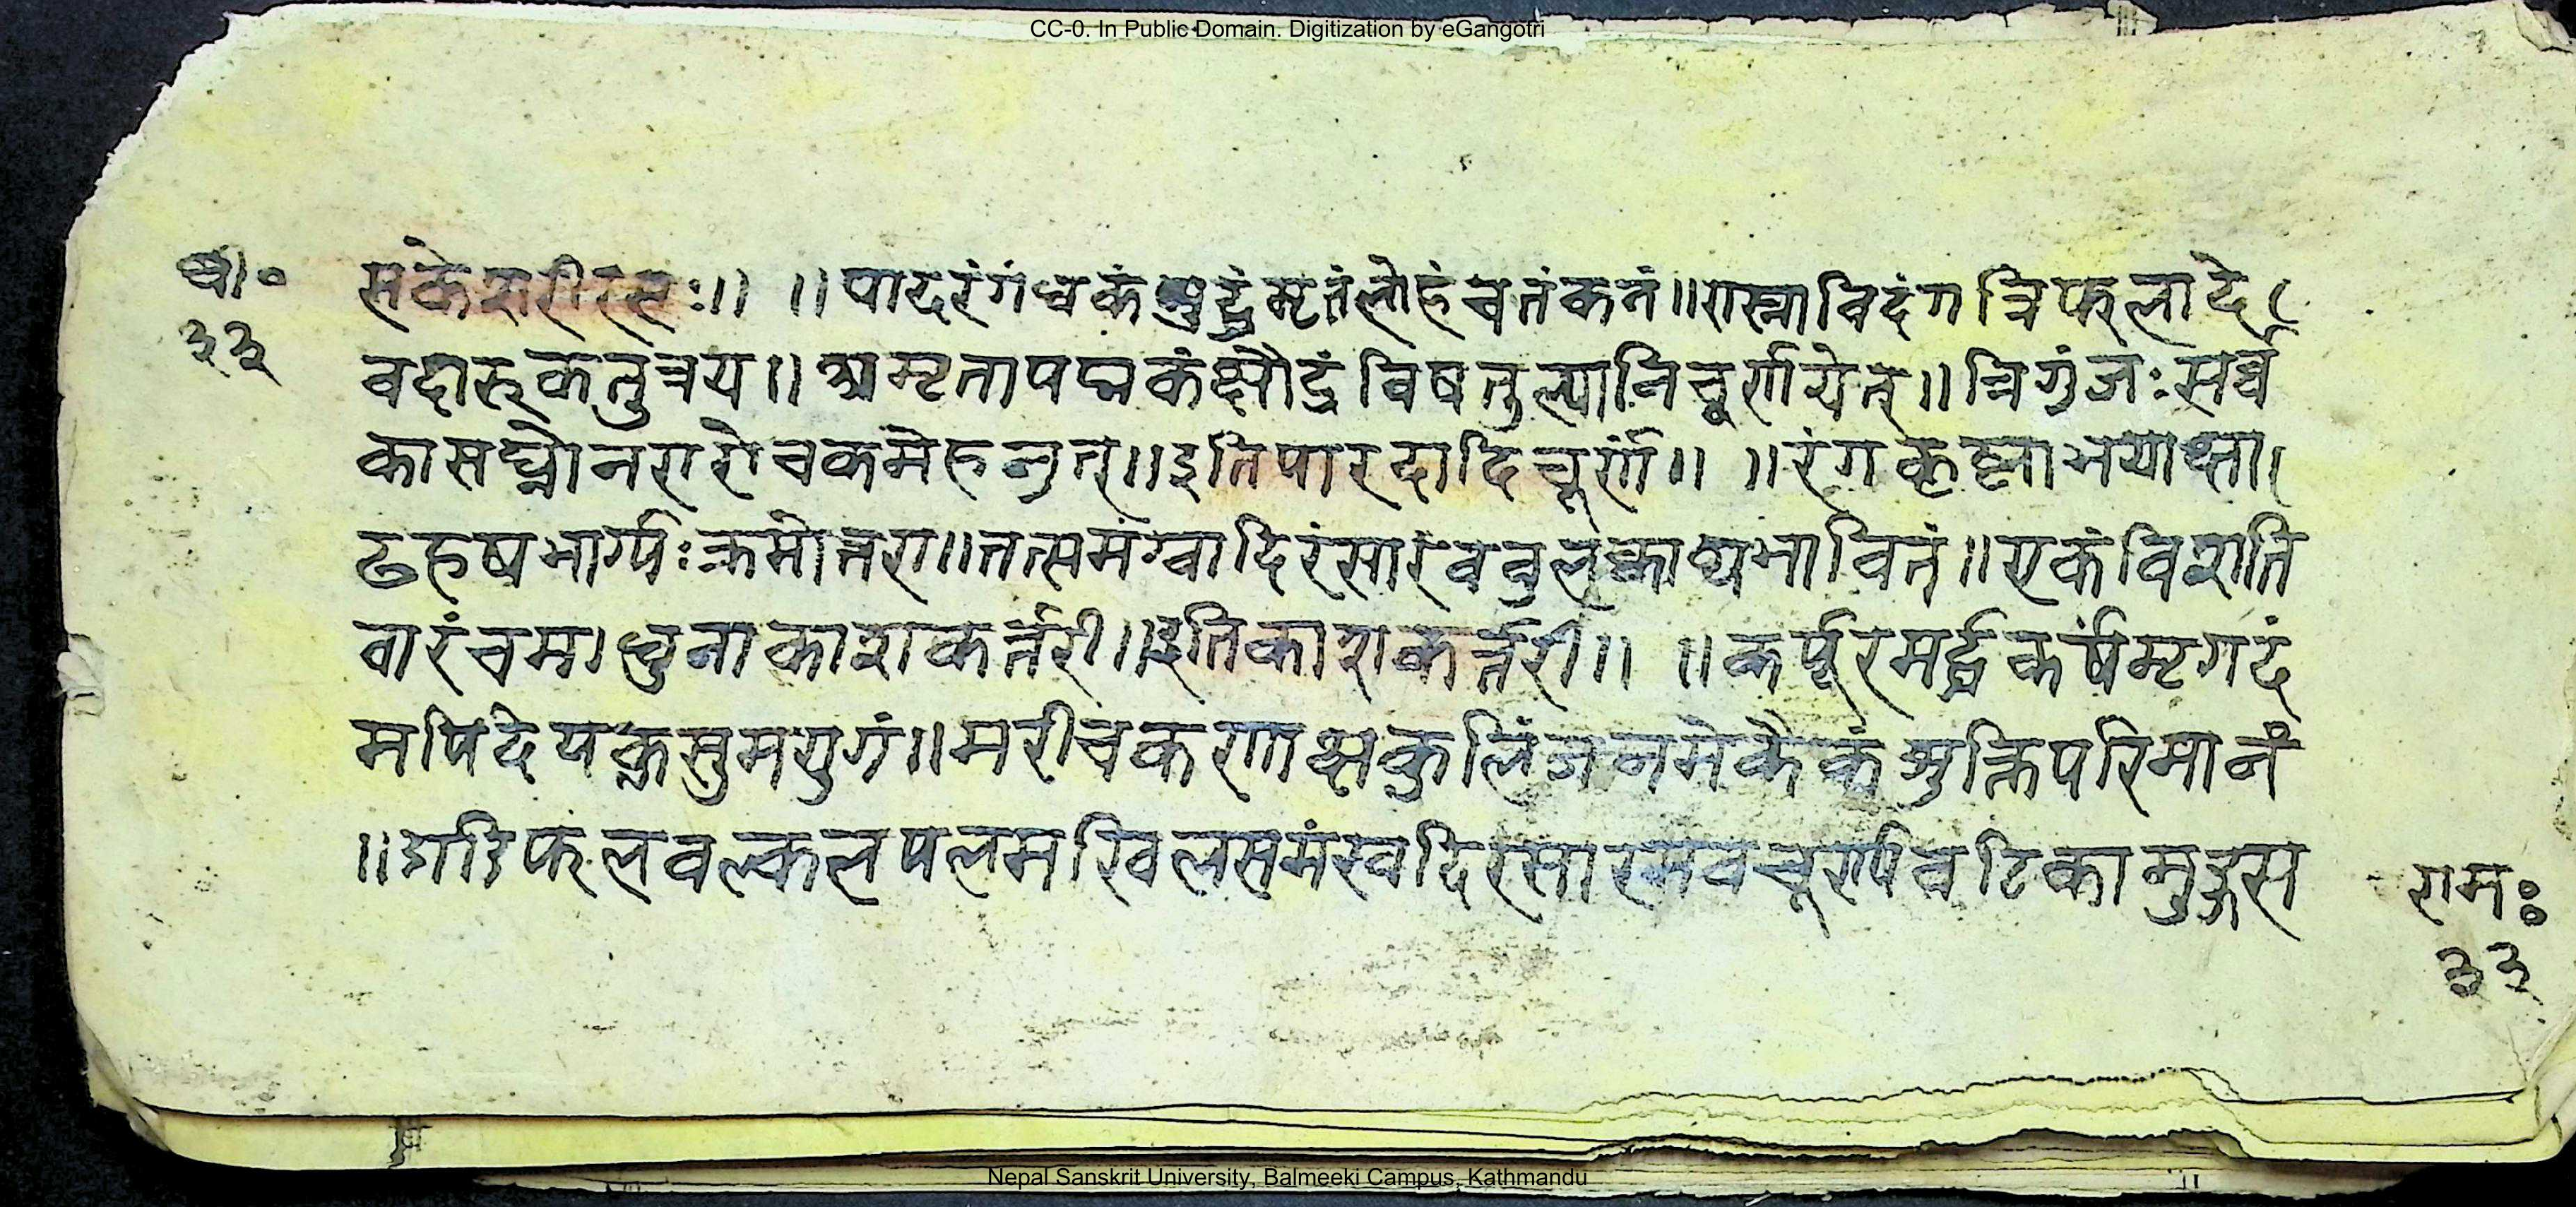 CC-0. In Public Domain. Digitization by eGangotri
सकेशरीरसः॥ ॥पादरंगंधकंशुद्धंमृतंलोहंचतंकनं॥रास्नाविदंगत्रिफलादे
३३
वदारुकतुत्रय॥अमृतापद्मकंक्षौद्रंविषतुल्यानिचूर्णयेत्॥त्रिगुंजःसर्व्व
कासघ्नोनरारोचकमेहनुत्॥इतिपारदादिचूर्णं॥ ॥रंगकृष्णाभयाक्षा
ढरुषभार्ग्यःक्रमोत्तरा॥तत्समंखादिरंसारंववुलक्वाथभावितं॥एकंविशति
वारंचमाधुनाकाशकर्त्तरी॥इतिकाशकर्त्तरी॥ ॥कर्पूरमर्द्धकर्षंमृगदं
मपिदेपक्लसुमयुगं॥मरीचकणाक्षकुलिंजनमेकैकंशुक्तिपरिमानं
॥डाडिफलवल्कलपलमखिलसमंखदिरसारमवचूर्ण्यवटिकामुद्गस
रामः
३३
Nepal Sanskrit University, Balmeeki Campus, Kathmandu